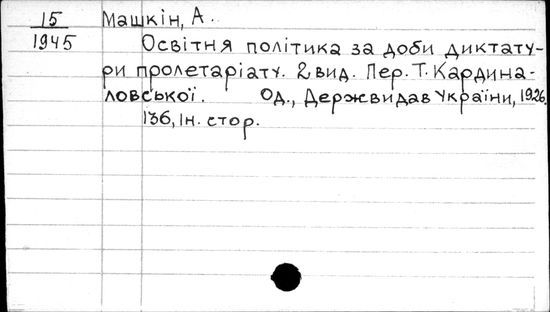 15 Машкін, А.
1945 Освітня політика за доби диктату-
ри пролетаріату. 2 вид. Пер. Т. Кардина-
ловської. Од., Держвидав України, 1926,
136, Ін. стор.